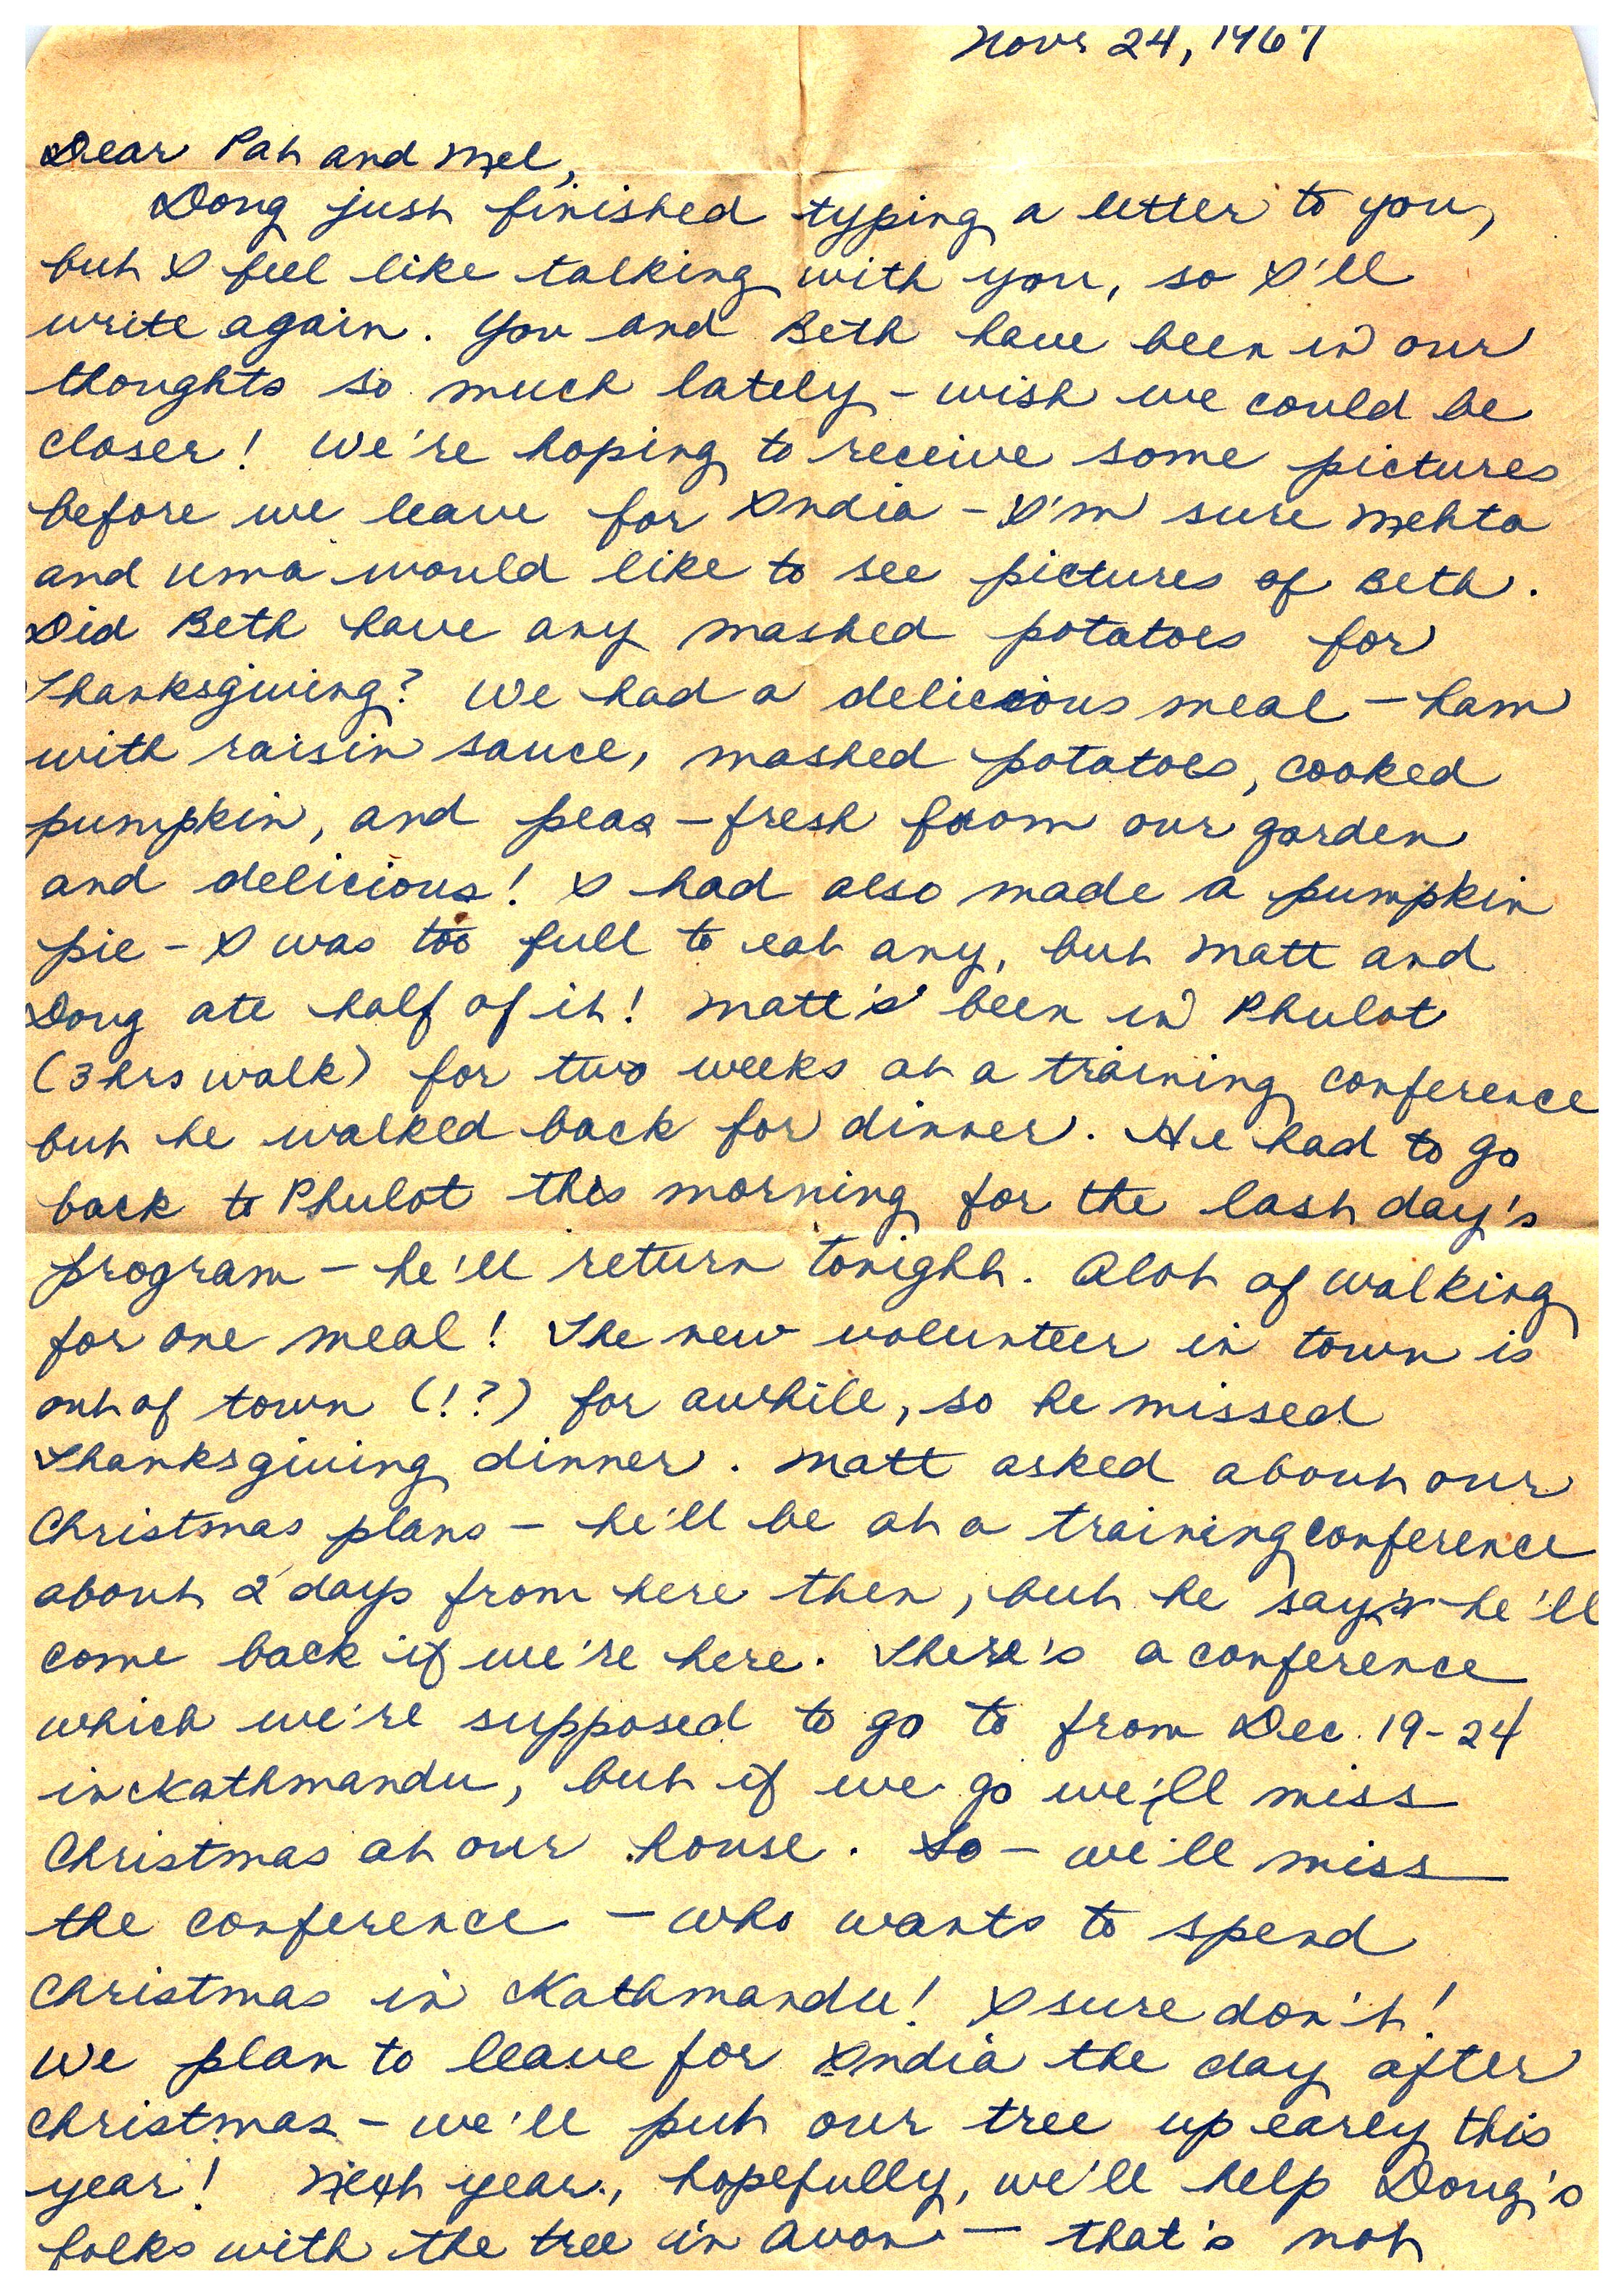 Nov. 24, 1967
Dear Pat and Mel,
Doug just finished typing a letter to you,
but I feel like talking with you, so I'll
write again. You and Beth have been in our
thoughts so much lately - wish we could be
closer! We're hoping to receive some pictures
before we leave for India - I'm sure Mehta
and Uma would like to see pictures of Beth.
Did Beth have any mashed potatoes for
Thanksgiving? We had a delicious meal - ham
with raisin sauce, mashed potatoes, cooked
pumpkin, and peas - fresh from our garden
and delicious! I had also made a pumpkin
pie - I was too full to eat any, but Matt and
Doug ate half of it! Matt's been in Phulot
(3 hrs walk) for two weeks at a training conference
but he walked back for dinner. He had to go
back to Phulot this morning for the last day's
program - he'll return tonight. Alot of walking
for one meal! The new volunteer in town is
out of town (!?) for awhile, so he missed
Thanksgiving dinner. Matt asked about our
Christmas plans - he'll be at a training conference
about 2 days from here then, but he says he'll
come back if we're here. There's a conference
which we're supposed to go to from Dec. 19-24
in Kathmandu, but if we go we'll miss
Christmas at our house. So - we'll miss
the conference - who wants to spend
Christmas in Kathmandu! I sure don't!
We plan to leave for India the day after
Christmas - we'll put our tree up early this
year! Next year, hopefully, we'll help Doug's
folks with the tree in Avon - that's not